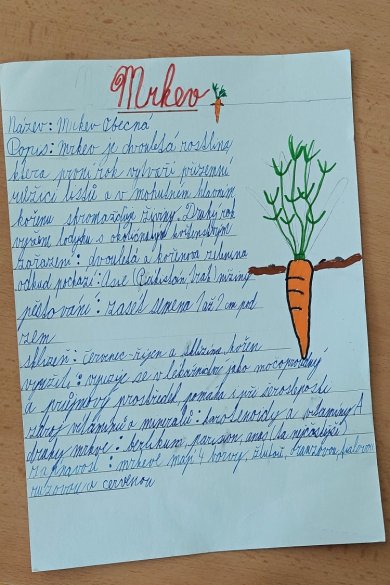 Mrkev
Název: Mrkev Obecná
Popis: Mrkev je dvouletá rostlina
která první rok vytváří přízemní
růžici listů a v mohutném hlavním
kořenu shromažďuje živiny. Druhý rok
vyroste lodyha s okoličnatým květenstvím
zařazení: dvouletá a kořenová zelenina
odkud pochází: Asie (Irák)
pěstování: zaset semena 1 až 2 cm pod
zem
sklizeň: červenec-říjen a sklízíme kořen
využití: využije se v lékařství jako močopudný
a průjmový prostředek, pomáhá i při šerosleposti
zdroj vitamínů a minerálů: karotenoidy a vitamíny A
druhy mrkve:
zajímavost: mrkve mají 4 barvy, žlutou, oranžovou, fialovou
růžovou a červenou